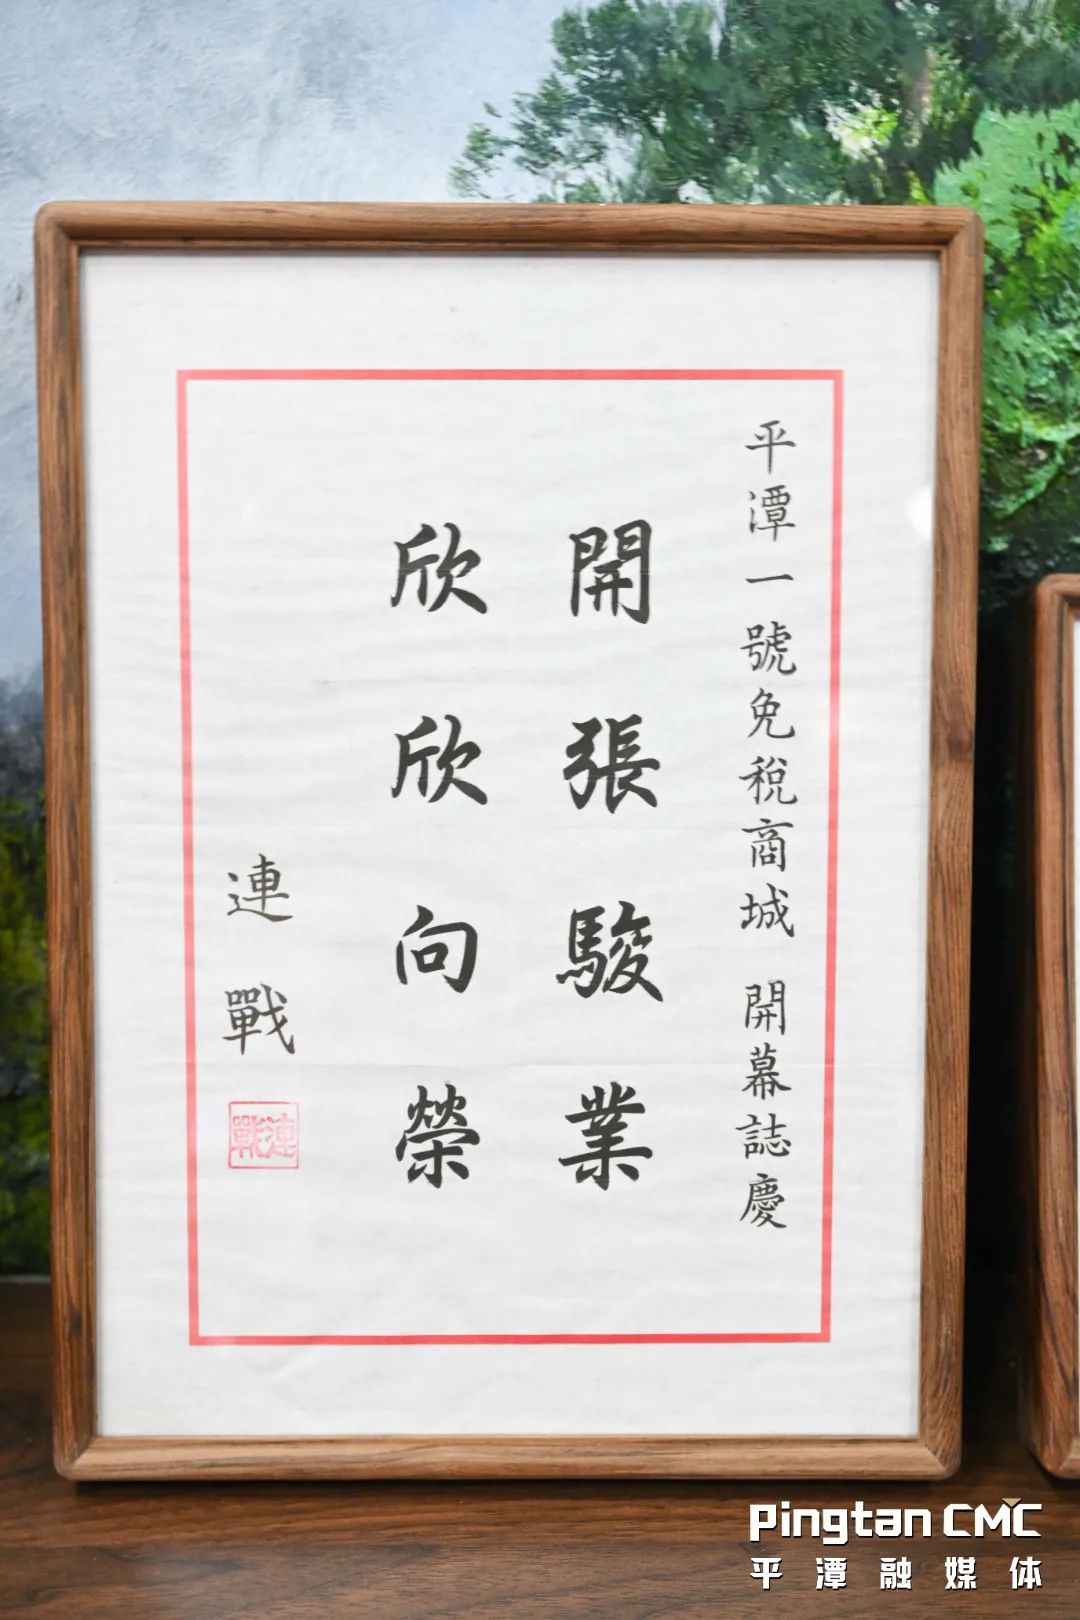 平潭一號免税商城 開幕誌慶
開張駿業
欣欣向榮
連戰
連戰
Pingtan CMC
平潭融媒体